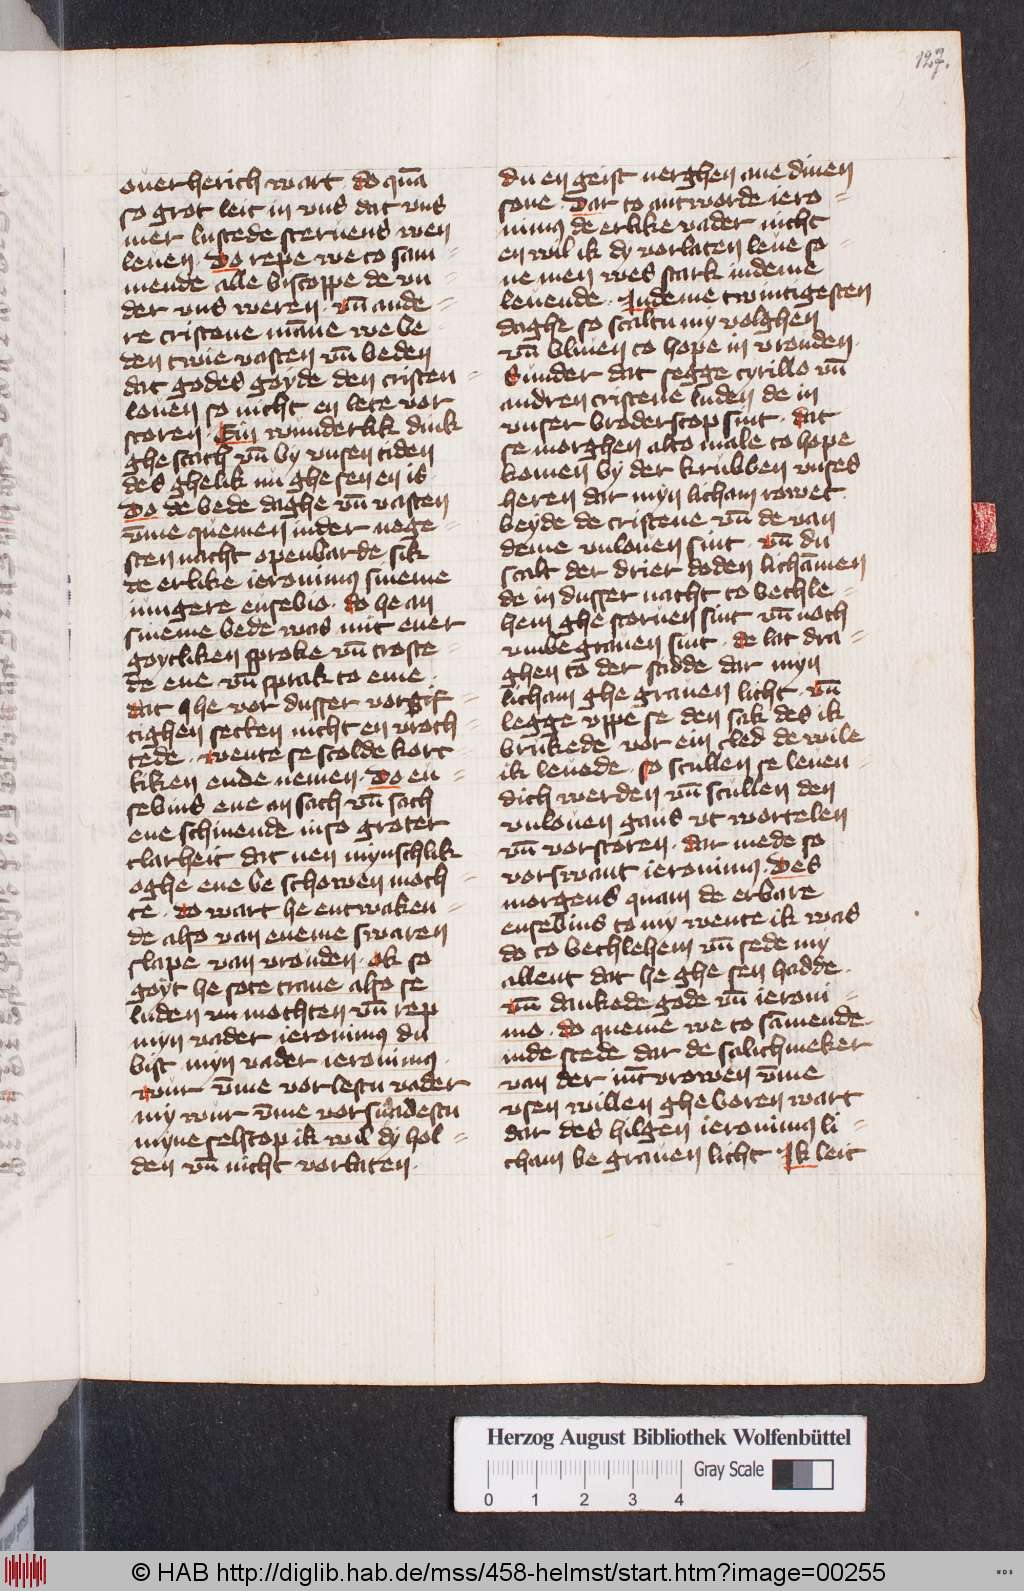 127.
ouerherich wart · do quā
so grot leit in vns dat vns
mer lustede steruens wen
leuen · Do repe we to sam=
mende alle biscoppe de vn
der vns weren · vn̄ ande=
re cristene māne we be
den twie vasten vn̄ beden
dat godes goyde den cristen=
louen so nicht en lete vor
storen · Ein wunderlik dink
ghe scach vn̄ by vnsen tiden
des ghelik nu ghe sen en is
Do de bede daghe vn̄ vasten
v̄me quemen inder nege=
sten nacht openbarde sik
de erlike ieronimus sineme
iungere eusebio · do he an
sineme bede was mit ener
goytliken sproke vn̄ troste=
de ene vn̄ sprak to eme
dat he vor dusser vorgif=
tighen secten nicht en vroch=
tede · wente se scolde kort=
liken ende nemen · Do eu=
sebius ene an sach vn̄ sach
ene schinende inso groter
clarheit dat nen mynschlik
oghe ene be schowen moch=
te · do wart he entwaken=
de also van eneme swaren
slape van vrouden · ok so
goyt he sote trane also se
luden vn mochten vn̄ rep
myn vader ieronimus du
bist myn vader ieronimus ·
wur v̄me vorlestu vader
my wur v̄me vorsmadestu
myne selscop ik wil dy hol=
den vn̄ nicht vorlaten ·
du en geist nerghen ane dinen
sone · Dar to antworde iero=
nimus de erlike vader nicht
en wil ik dy vorlaten leue so=
ne men wes stark indeme
leuende · Indeme twintigesten
daghe so scaltu my volghen
vn̄ bliuen to hope in vrouden ·
Sunder dat segge cyrillo vn̄
andren cristene luden de in
vnser broderscop sint · dat
se morghen alto male to hope
komen by der krubben vnses
heren dar myn licham rowet
beyde de cristene vn̄ de van
deme vnlouen sint · vn̄ du
scalt der drier doden lichāmen
de in dusser nacht to bethle=
hem ghe storuen sint vn̄ noch
vmbe grauen sint · de lat dra=
ghen to der stidde dar myn
licham ghe grauen licht · vn̄
legge vppe se den sak des ik
brukede vor ein cled de wile
ik leuede · so scullen se leuen=
dich werden vn̄ scullen den
vnlouen gans vt wortelen
vn̄ vorstoren · dar mede so
vorswant ieronimus · Des
morgens quam de erbare
eusebius to my wente ik was
do to bethlehem vn̄ sede my
allent dat he ghe sen hadde ·
vn̄ dankede gode vn̄ ieroni=
mo · do queme we to sāmende
inde stede dar de salichmeker
van der iūcvrowen v̄me
vsen willen ghe boren wart
dar des hilgen ieronimus li=
cham be grauen licht · Ik leit
Herzog August Bibliothek Wolfenbüttel
Gray Scale
0 1 2 3 4
© HAB http://diglib.hab.de/mss/458-helmst/start.htm?image=00255